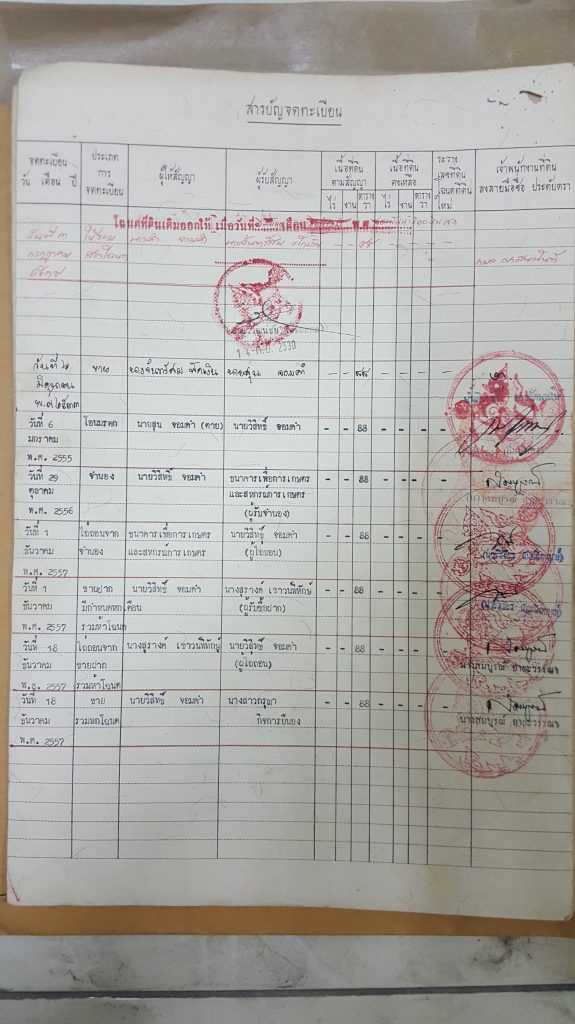 สารบัญจดทะเบียน
จดทะเบียน วัน เดือน ปี
ประเภทการจดทะเบียน
ผู้ให้สัญญา
ผู้รับสัญญา
เนื้อที่ดินตามสัญญา
ไร่ งาน ตารางวา
เนื้อที่ดินคงเหลือ
ไร่ งาน ตารางวา
ระวาง เลขที่ดิน โฉนดที่ดินใหม่
เจ้าพนักงานที่ดิน ลงลายมือชื่อ ประทับตรา
โฉนดที่ดินเดิมออกให้ เมื่อวันที่ เดือน พ.ศ.
วันที่ ๓
กรกฎาคม
2530
วันที่ ๖ ขาย - - ๘๘ - - - -
มิถุนายน
พ.ศ.
วันที่ 6 โอนมรดก นายสุน จอมคำ (ตาย) นายวิสิทธิ์ จอมคำ - - 88 - - - -
มกราคม
พ.ศ. 2555
วันที่ 29 จำนอง นายวิสิทธิ์ จอมคำ ธนาคารเพื่อการเกษตร - - 88 - - - -
ตุลาคม และสหกรณ์การเกษตร
พ.ศ. 2556 (ผู้รับจำนอง)
วันที่ 1 ไถ่ถอนจาก ธนาคารเพื่อการเกษตร นายวิสิทธิ์ จอมคำ - - 88 - - - -
ธันวาคม จำนอง และสหกรณ์การเกษตร (ผู้ไถ่ถอน)
พ.ศ. 2557
วันที่ 1 ขายฝาก นายวิสิทธิ์ จอมคำ นางสุรางค์ เชาวนพิทักษ์ - - 88 - - - -
ธันวาคม มีกำหนดหกเดือน (ผู้รับซื้อฝาก)
พ.ศ. 2557 รวมห้าโฉนด
วันที่ 18 ไถ่ถอนจาก นางสุรางค์ เชาวนพิทักษ์ นายวิสิทธิ์ จอมคำ - - 88 - - - -
ธันวาคม ขายฝาก (ผู้ไถ่ถอน) นางสมบูรณ์ อายะวรรณา
พ.ศ. 2557 รวมห้าโฉนด
วันที่ 18 ขาย นายวิสิทธิ์ จอมคำ นางสาวกรุณา - - 88 - - - -
ธันวาคม รวมหกโฉนด กิจการยืนยง นางสมบูรณ์ อายะวรรณา
พ.ศ. 2557